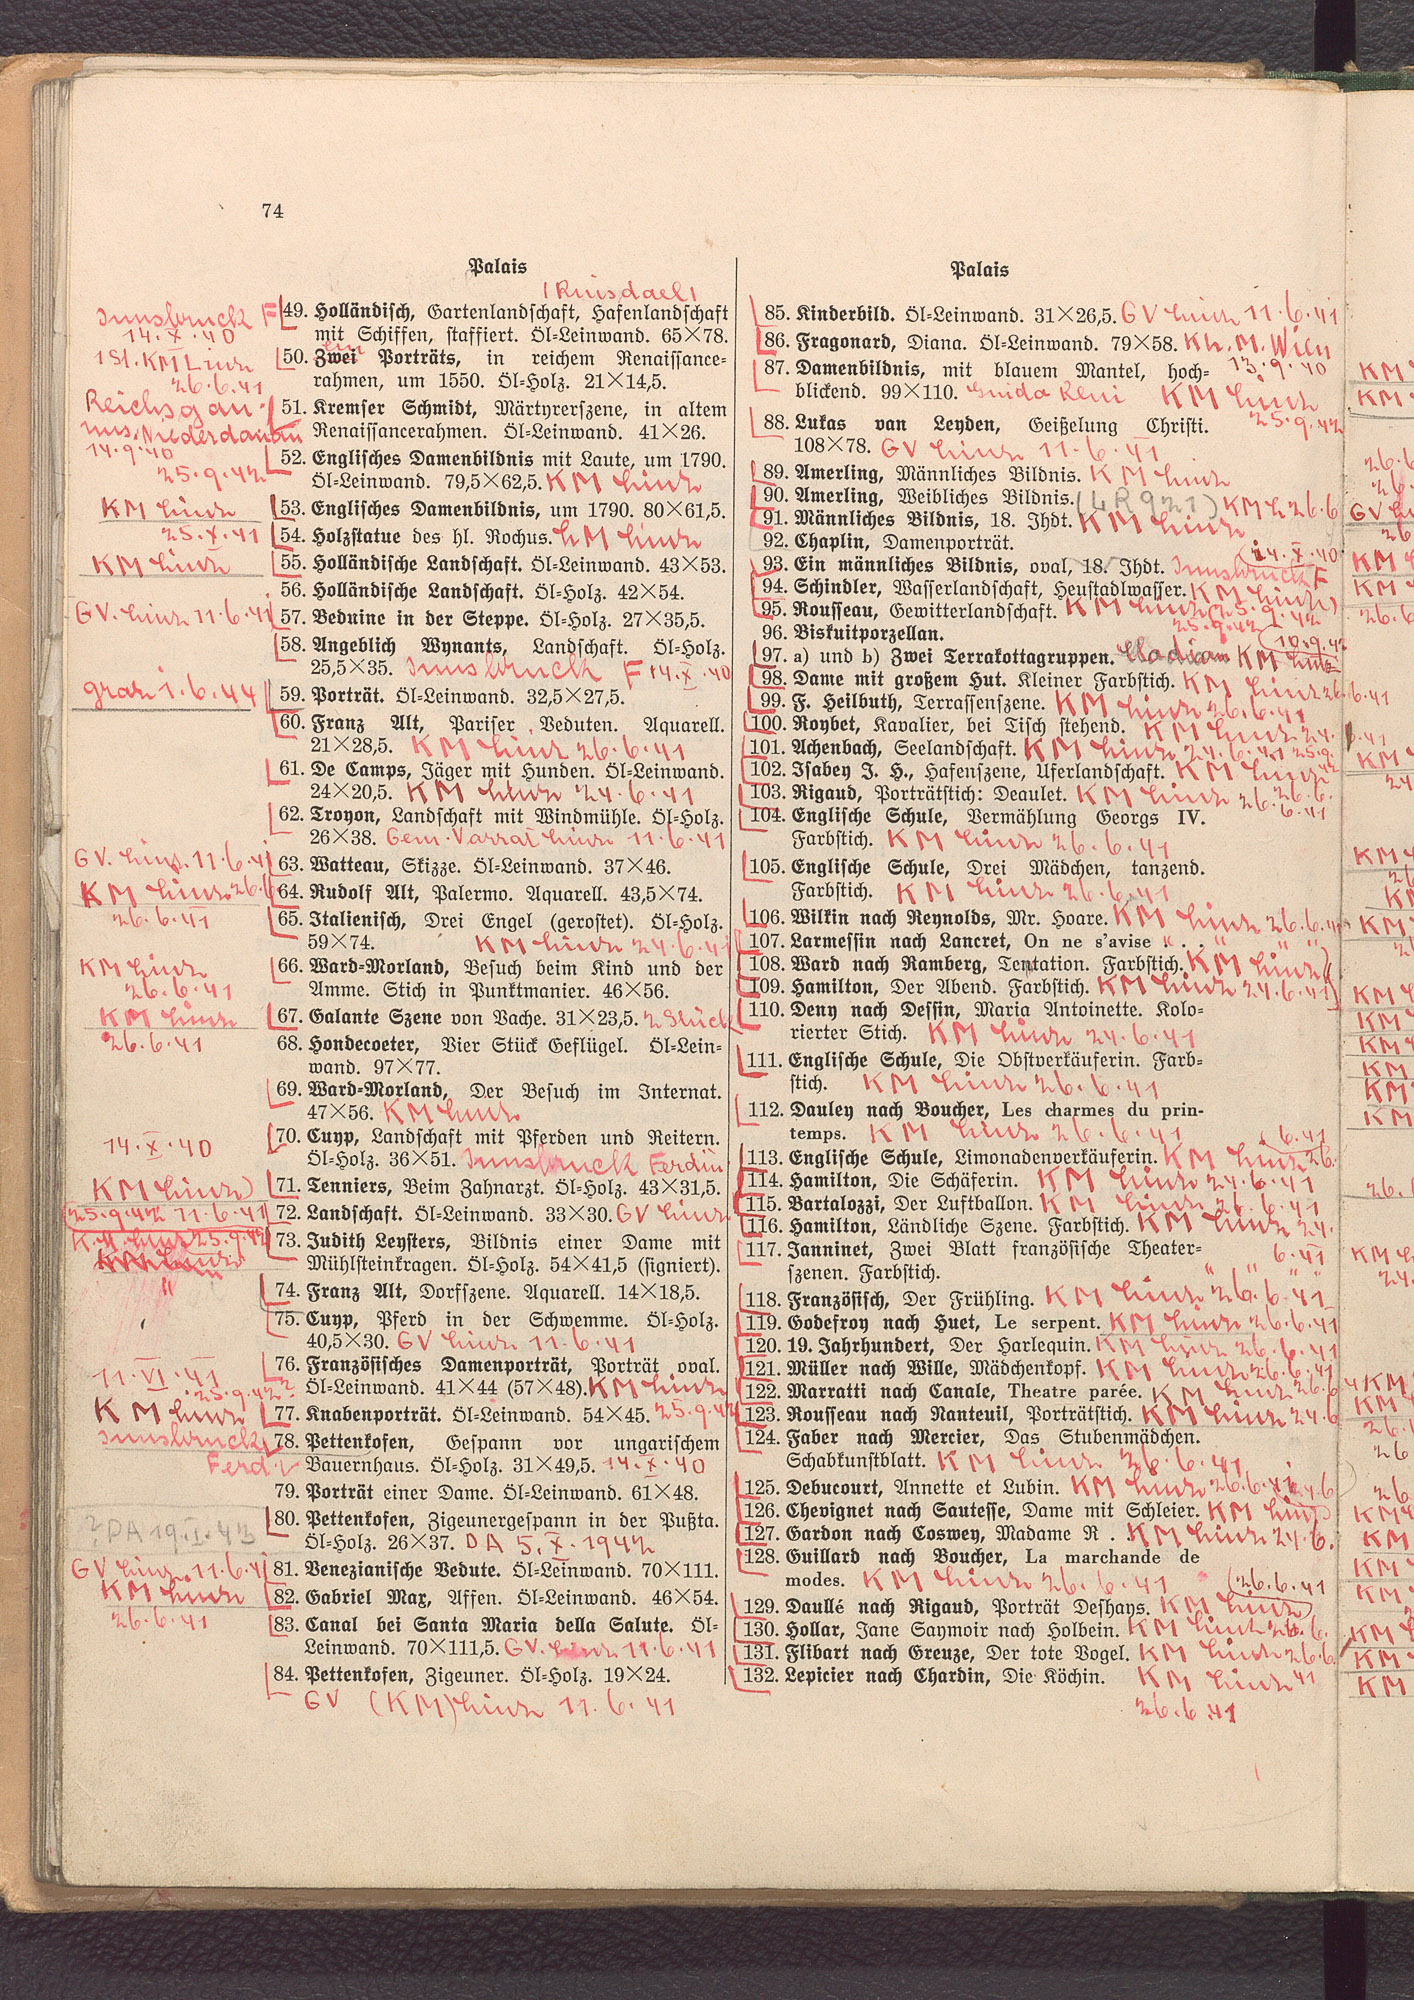 74
Palais
(Ruisdael)
Innsbruck F
14.X.40
49. Holländisch, Gartenlandschaft, Hafenlandschaft
mit Schiffen, staffiert. Öl-Leinwand. 65×78.
1 St. KM Linz
26.6.41
ein
50. Zwei Porträts, in reichem Renaissance-
rahmen, um 1550. Öl-Holz. 21×14,5.
Reichsgau-
mus. Niederdonau
14.9.40
51. Kremser Schmidt, Märtyrerszene, in altem
Renaissancerahmen. Öl-Leinwand. 41×26.
25.9.42
52. Englisches Damenbildnis mit Laute, um 1790.
Öl-Leinwand. 79,5×62,5. KM Linz
KM Linz
53. Englisches Damenbildnis, um 1790. 80×61,5.
25.X.41
54. Holzstatue des hl. Rochus. KM Linz
KM Linz
55. Holländische Landschaft. Öl-Leinwand. 43×53.
56. Holländische Landschaft. Öl-Holz. 42×54.
GV. Linz 11.6.41
57. Beduine in der Steppe. Öl-Holz. 27×35,5.
58. Angeblich Wynants, Landschaft. Öl-Holz.
25,5×35. Innsbruck F 14.X.40
Graz 1.6.44
59. Porträt. Öl-Leinwand. 32,5×27,5.
60. Franz Alt, Pariser Veduten. Aquarell.
21×28,5. KM Linz 26.6.41
61. De Camps, Jäger mit Hunden. Öl-Leinwand.
24×20,5. KM Linz 24.6.41
62. Troyon, Landschaft mit Windmühle. Öl-Holz.
26×38. Gem. Vorrat Linz 11.6.41
GV. Linz. 11.6.41
63. Watteau, Skizze. Öl-Leinwand. 37×46.
KM Linz 26.6
64. Rudolf Alt, Palermo. Aquarell. 43,5×74.
26.6.41
65. Italienisch, Drei Engel (gerostet). Öl-Holz.
59×74. KM Linz 24.6.41
KM Linz
26.6.41
66. Ward-Morland, Besuch beim Kind und der
Amme. Stich in Punktmanier. 46×56.
KM Linz
67. Galante Szene von Vache. 31×23,5. 2 Stück
26.6.41
68. Hondecoeter, Vier Stück Geflügel. Öl-Lein-
wand. 97×77.
69. Ward-Morland, Der Besuch im Internat.
47×56. KM Linz
14.X.40
70. Cuyp, Landschaft mit Pferden und Reitern.
Öl-Holz. 36×51. Innsbruck Ferdin.
KM Linz)
71. Tenniers, Beim Zahnarzt. Öl-Holz. 43×31,5.
25.9.42 11.6.41
72. Landschaft. Öl-Leinwand. 33×30. GV Linz
KM Linz 25.9.42
73. Judith Leysters, Bildnis einer Dame mit
Mühlsteinkragen. Öl-Holz. 54×41,5 (signiert).
"
74. Franz Alt, Dorfszene. Aquarell. 14×18,5.
75. Cuyp, Pferd in der Schwemme. Öl-Holz.
40,5×30. GV Linz 11.6.41
11.VI.41
76. Französisches Damenporträt, Porträt oval.
25.9.42
Öl-Leinwand. 41×44 (57×48). KM Linz
KM Linz
77. Knabenporträt. Öl-Leinwand. 54×45. 25.9.42
Innsbruck
Ferd.
78. Pettenkofen, Gespann vor ungarischem
Bauernhaus. Öl-Holz. 31×49,5. 14.X.40
79. Porträt einer Dame. Öl-Leinwand. 61×48.
? DA 19.I.43
80. Pettenkofen, Zigeunergespann in der Pußta.
Öl-Holz. 26×37. DA 5.X.1942
GV Linz 11.6.4
81. Venezianische Vedute. Öl-Leinwand. 70×111.
KM Linz
82. Gabriel Max, Affen. Öl-Leinwand. 46×54.
26.6.41
83. Canal bei Santa Maria della Salute. Öl-
Leinwand. 70×111,5. GV. Linz 11.6.41
84. Pettenkofen, Zigeuner. Öl-Holz. 19×24.
GV (KM) Linz 11.6.41
Palais
85. Kinderbild. Öl-Leinwand. 31×26,5. GV Linz 11.6.41
86. Fragonard, Diana. Öl-Leinwand. 79×58. Kh. M. Wien
13.9.40
87. Damenbildnis, mit blauem Mantel, hoch-
blickend. 99×110. Guido Reni KM Linz
25.9.42
88. Lukas van Leyden, Geißelung Christi.
108×78. GV Linz 11.6.41
89. Amerling, Männliches Bildnis. KM Linz
90. Amerling, Weibliches Bildnis. (LR 921) KM L 26.6
91. Männliches Bildnis, 18. Jhdt. KM Linz
92. Chaplin, Damenporträt.
14.X.40
93. Ein männliches Bildnis, oval, 18. Jhdt. Innsbruck F
94. Schindler, Wasserlandschaft, Heustadlwasser. KM Linz)
95. Rousseau, Gewitterlandschaft. KM Linz (25.9.42
25.9.42
96. Biskuitporzellan.
10.9.42
97. a) und b) Zwei Terrakottagruppen. Clodion KM Linz
98. Dame mit großem Hut. Kleiner Farbstich. KM Linz 26.6.41
99. F. Heilbuth, Terrassenszene. KM Linz 26.6.41
100. Roybet, Kavalier, bei Tisch stehend. KM Linz 24.
101. Achenbach, Seelandschaft. KM Linz 24.6.41 25.9.
42
102. Isabey J. H., Hafenszene, Uferlandschaft. KM Linz
103. Rigaud, Porträtstich: Deaulet. KM Linz 26.6.
26.6.41
104. Englische Schule, Vermählung Georgs IV.
Farbstich. KM Linz 26.6.41
105. Englische Schule, Drei Mädchen, tanzend.
Farbstich. KM Linz 26.6.41
106. Wilkin nach Reynolds, Mr. Hoare. KM Linz 26.6.4
107. Larmessin nach Lancret, On ne s'avise . . " " "
108. Ward nach Ramberg, Tentation. Farbstich. KM Linz
109. Hamilton, Der Abend. Farbstich. KM Linz 24.6.41
110. Deny nach Dessin, Maria Antoinette. Kolo-
rierter Stich. KM Linz 24.6.41
111. Englische Schule, Die Obstverkäuferin. Farb-
stich. KM Linz 26.6.41
112. Dauley nach Boucher, Les charmes du prin-
temps. KM Linz 26.6.41
6.41
113. Englische Schule, Limonadenverkäuferin. KM Linz 26.
114. Hamilton, Die Schäferin. KM Linz 24.6.41
115. Bartalozzi, Der Luftballon. KM Linz 26.6.41
116. Hamilton, Ländliche Szene. Farbstich. KM Linz 24.
6.41
117. Janninet, Zwei Blatt französische Theater-
szenen. Farbstich. " " " "
118. Französisch, Der Frühling. KM Linz 26.6.41
119. Godefroy nach Huet, Le serpent. KM Linz 26.6.41
120. 19. Jahrhundert, Der Harlequin. KM Linz 26.6.41
121. Müller nach Wille, Mädchenkopf. KM Linz 26.6.41
122. Marratti nach Canale, Theatre parée. KM Linz 26.6
123. Rousseau nach Nanteuil, Porträtstich. KM Linz 24.6
124. Faber nach Mercier, Das Stubenmädchen.
Schabkunstblatt. KM Linz 26.6.41
125. Debucourt, Annette et Lubin. KM Linz 26.6.41 24.6
126. Chevignet nach Sautesse, Dame mit Schleier. KM Linz
127. Gardon nach Coswey, Madame R . KM Linz 24.6.
128. Guillard nach Boucher, La marchande de
modes. KM Linz 26.6.41
(26.6.41
129. Daullé nach Rigaud, Porträt Deshays. KM Linz)
130. Hollar, Jane Saymoir nach Holbein. KM Linz 26.6.
131. Flibart nach Greuze, Der tote Vogel. KM Linz 26.6.
132. Lepicier nach Chardin, Die Köchin. KM Linz 41
26.6.41